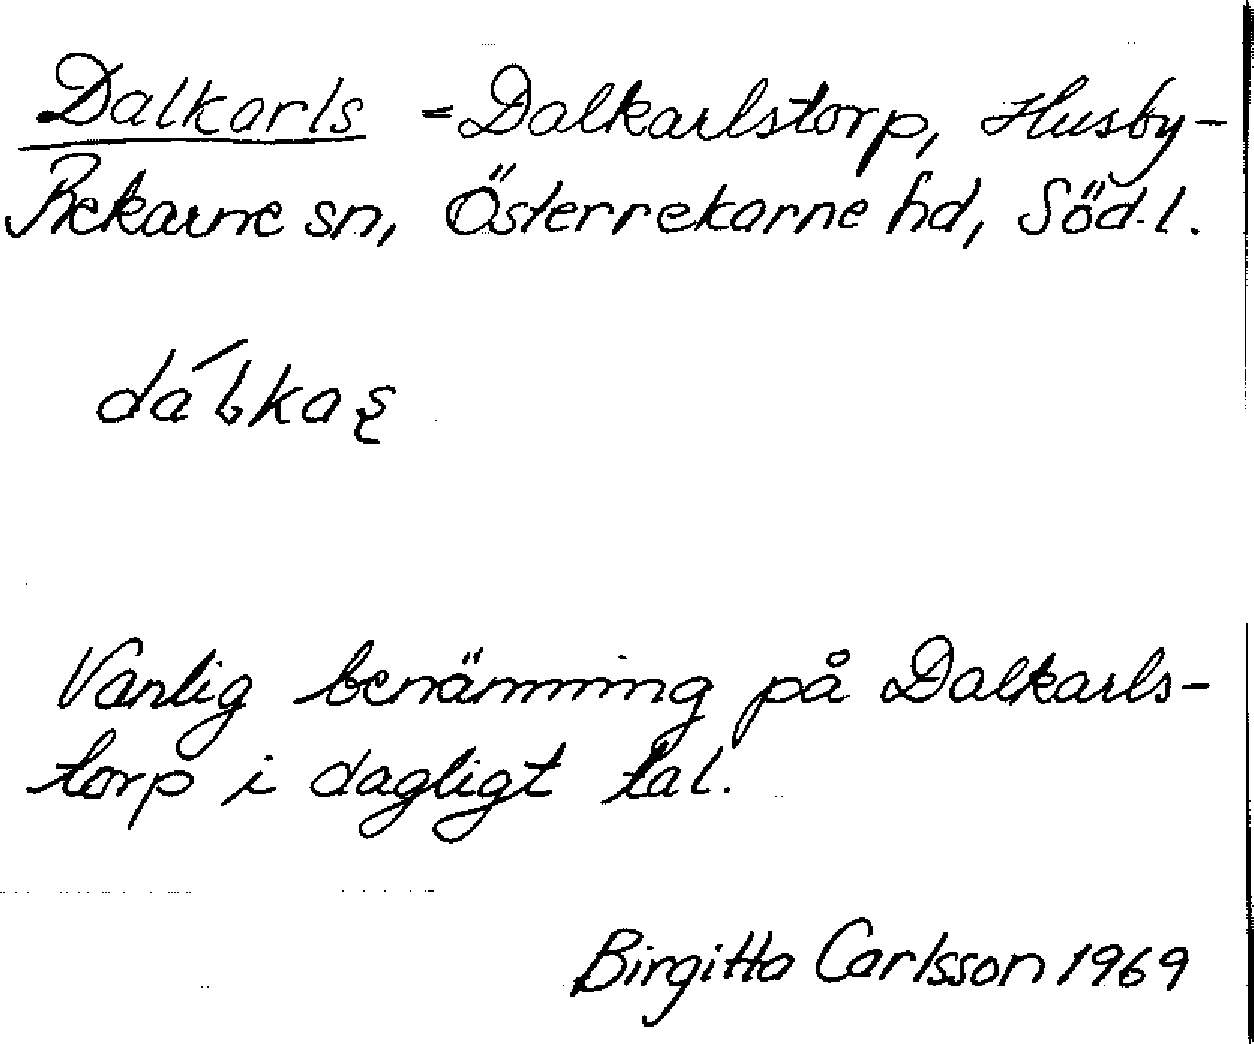 Dalkarls - Dalkarlstorp, Husby-
Rekarne sn, Österrekarne hd, Södl.
Vanlig benämning på Dalkarls-
torp i dagligt tal.
Birgitta Carlsson 1969